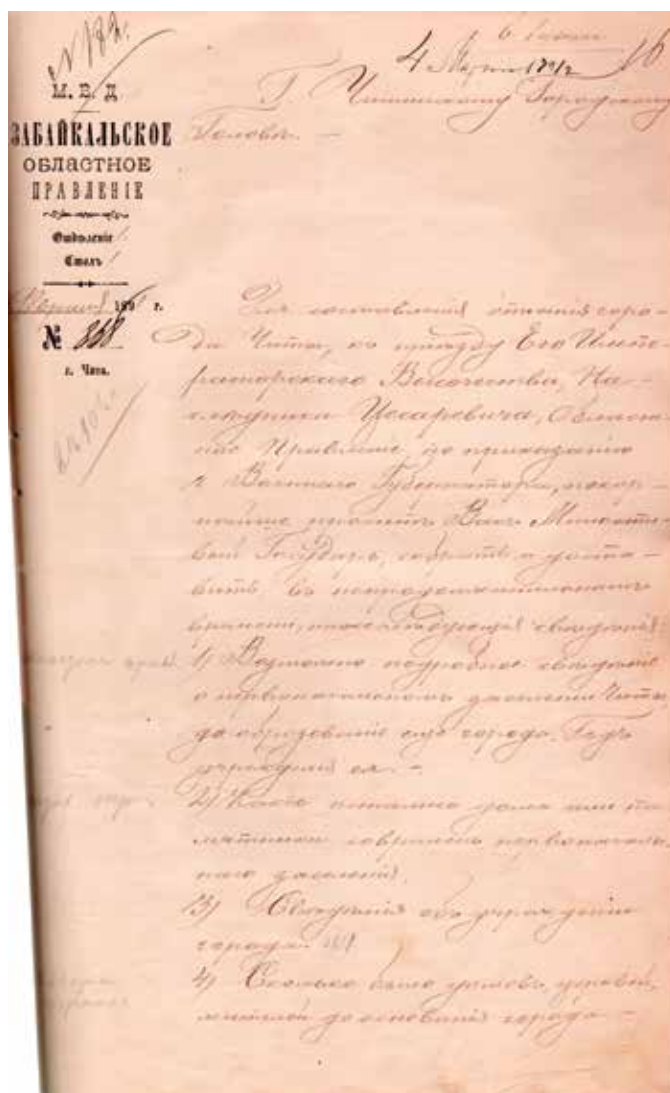 № 182.
4 Марта 1891 г.
16
М. В. Д.
ЗАБАЙКАЛЬСКОЕ
ОБЛАСТНОЕ
ПРАВЛЕНІЕ
Отдѣленіе 1
Столъ 1
Марта 1891 г.
№ 868
г. Чита.
Г Читинскому Городскому
Головѣ. —
Для составленія описанія горо-
да Читы, къ пріѣзду Его Импе-
раторскаго Высочества, На-
слѣдника Цесаревича, Област-
ное Правленіе, по приказанію
г. Военнаго Губернатора, покор-
нѣйше проситъ Васъ Милости-
вый Государь, собрать и доста-
вить, въ
времени, нижеслѣдующія свѣдѣнія:
1) Возможно подробное свѣдѣніе
о первоначальномъ заселеніи Читы
до образованія еще города. Годъ
учрежденія ея. —
2) Какіе остались дома или па-
мятники современъ первоначаль-
наго заселенія.
3) Свѣдѣнія объ учрежденіи
города.
4) Сколько было домовъ, церквей,
жителей до основанія города —